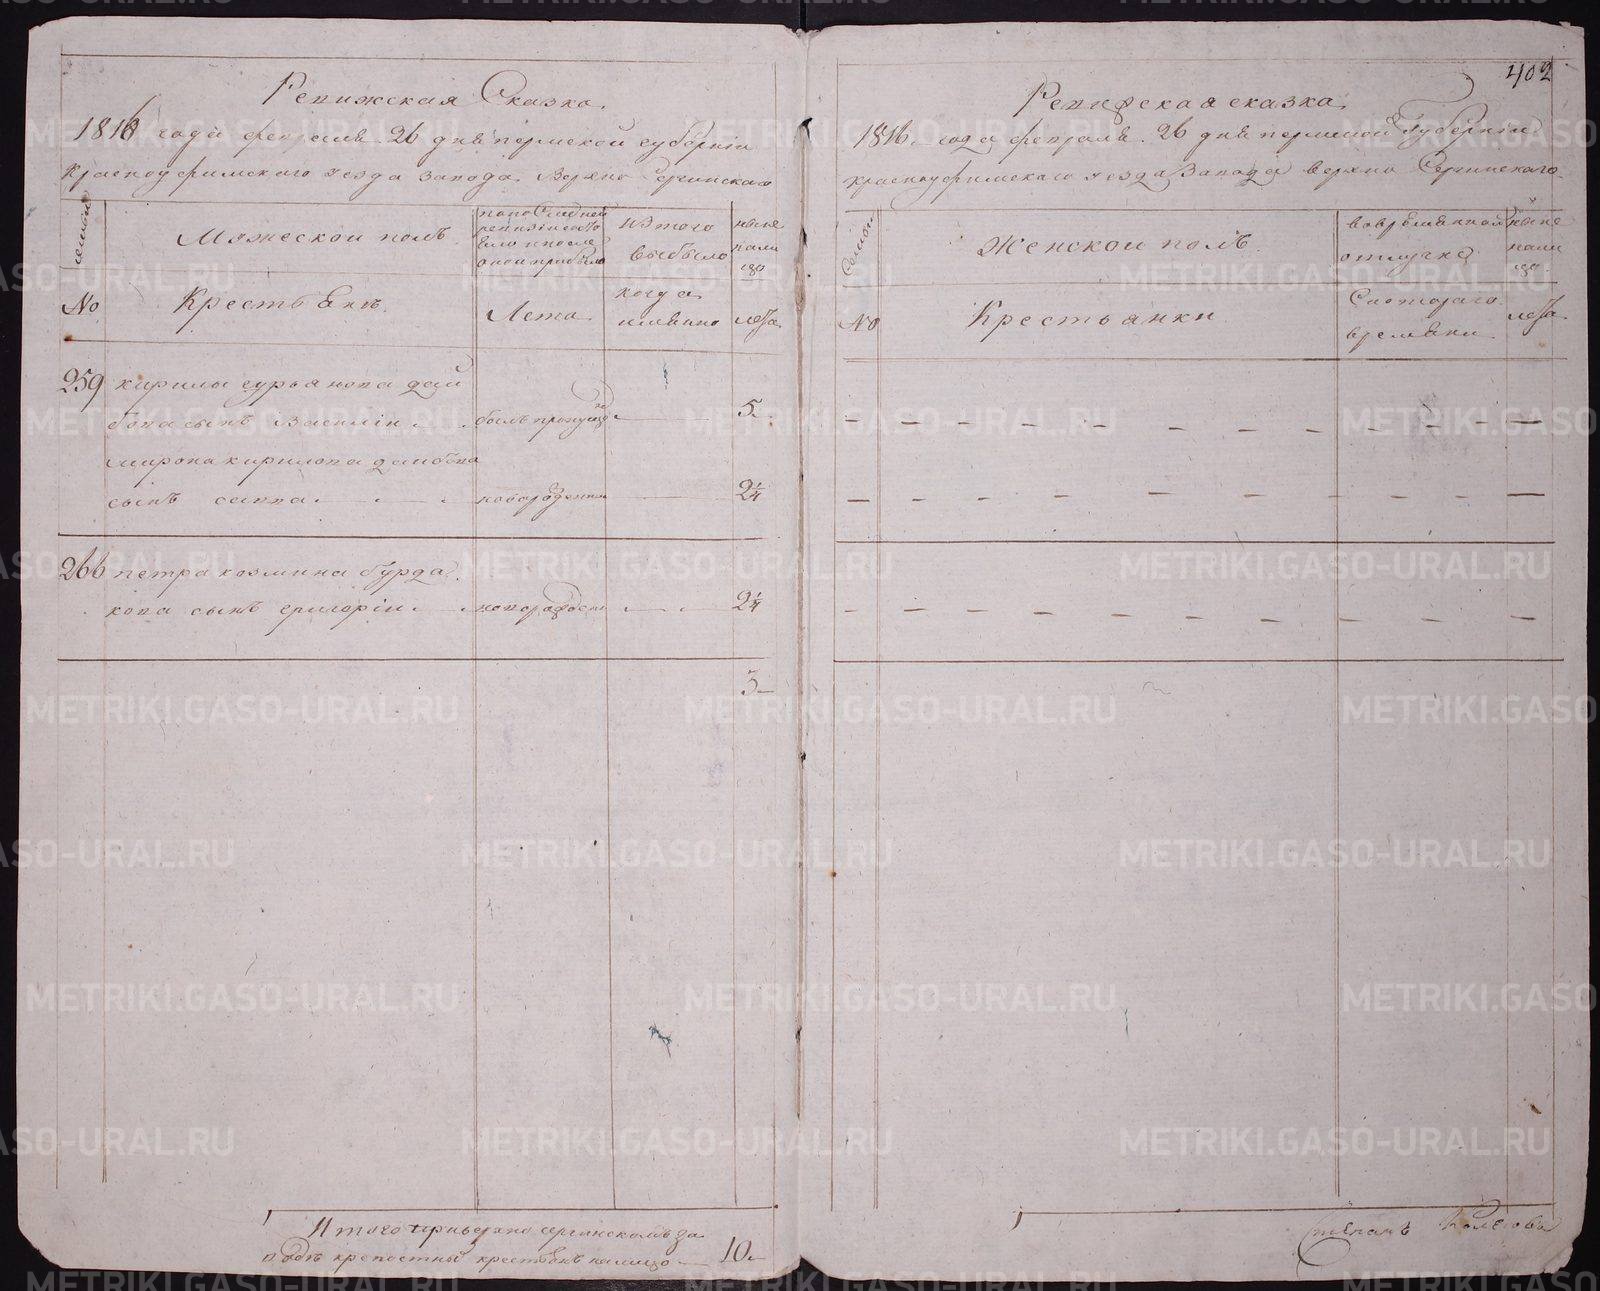 Ревижская Сказка.
1816 года февраля 26 дня пермской губернiи
Красноуфимскаго уезда завода Верхно Сергинскаго
семьи
Мужескои полъ
попоследней
ревизiисостъ
было ипосле
онои прибыло
изтого
выбыло
ныне
нали
цо
No
Крестьянѣ.
Лета
когда
имянно
лѣта
259 кирилы сурьянова дай
бова сынъ василiи был пропущ 5
мирона кирилова даибова
сынъ савва новорожденн 2 1/4
266 петра козмина бурда
кова сынъ григорiи новорожден 2 1/4
3
Итого приверхно сергинскомъ за
водѣ крепостныхъ крестьянъ налицо 10
402
Ревижская сказка.
1816 года февраля 26 дня пермской Губернiи
красноуфимскаго уезда Завода верхно Сергинскаго
Семьи
Женскои полъ
вовремяннои
отлучке
ныне
нали
цо
No
Крестьянки
Скотораго
времяни
лѣта
Степанъ Колегова
METRIKI.GASO-URAL.RU